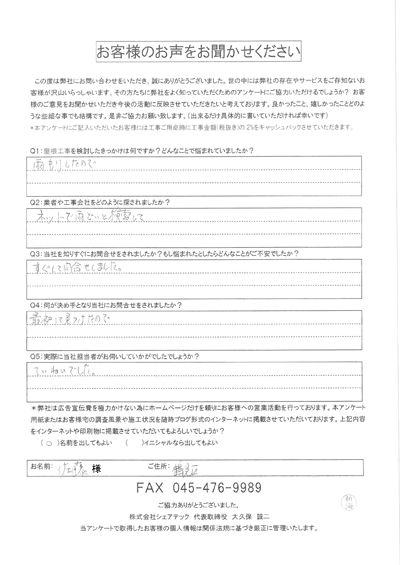 お客様のお声をお聞かせください
この度は弊社にお問い合わせをいただき、誠にありがとうございました。世の中には弊社の存在やサービスをご存知ないお
客様が沢山いらっしゃいます。その方たちに弊社をよく知っていただくためのアンケートにご協力いただけるでしょうか? お客
様のご意見をお聞かせいただき今後の活動に反映させていただきたいと考えております。良かったこと、嬉しかったことどのよ
うな些細な事でも結構です。是非ご協力お願い致します。(出来るだけ具体的に書いていただければ幸いです)
*本アンケートにご記入いただいたお客様には工事ご用命時に工事金額(税抜き)の2%をキャッシュバックさせていただきます。
Q1:屋根工事を検討したきっかけは何ですか?どんなことで悩まれていましたか?
雨もりしたので
Q2:業者や工事会社をどのように探されましたか?
ネットで雨どいと検索して
Q3:当社を知りすぐにお問合せをされましたか?もし悩まれたとしたらどんなことがご不安でしたか?
すぐに問合せしました。
Q4:何が決め手となり当社にお問合せをされましたか?
最初に見つけたので
Q5:実際に当社担当者がお伺いしていかがでしたでしょうか?
ていねいでした。
*弊社は広告宣伝費を極力かけない為にホームページだけを頼りにお客様への営業活動を行っております。本アンケート
用紙またはお客様宅の調査風景や施工状況を随時ブログ形式のインターネットに掲載させていただいております。上記内容
をインターネットや印刷物に掲載させていただいてもよろしいでしょうか?
(○)名前を出してもよい ( )イニシャルなら出してもよい
お名前: 佐藤 様 ご住所: 鶴見区
FAX 045-476-9989
ご協力ありがとうございました。
株式会社シェアテック 代表取締役 大久保 誠二
当アンケートで取得したお客様の個人情報は関係法規に基づき厳正に管理いたします。